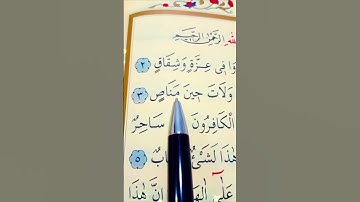 الرَّحْمٰنِ الرَّحِيمِ
فِى عِزَّةٍ وَشِقَاقٍ ﴿٢﴾
وَلَاتَ حِينَ مَنَاصٍ ﴿٣﴾
الْكَافِرُونَ سَاحِرٌ
هٰذَا لَشَىْءٌ ابٌ ﴿٥﴾
عَلٰٓى اٰلِهَ اِنَّ هٰذَا